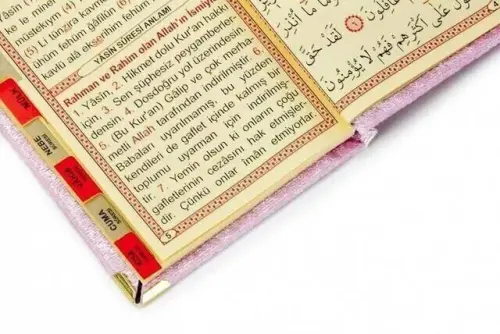 tekır
(5) Lî tünzira kavmen
hüm fehüm gâfilûn
kavlü alâ ekserihim fehüm
YASİN SURESİ ANLAMI
Rahman ve Rahim olan Allah'ın ismiyle
1. Yâsin, 2. Hikmet dolu Kur'an hakkı
için, 3. Sen şüphesiz peygamberler-
densin. 4. Dosdoğru yol üzerindesin.
5. (Bu Kur'an) Gâlip ve çok merha-
metli Allah tarafından indirilmiştir. 6.
Babaları uyarılmamış, bu yüzden
kendileri de gaflet içinde kalmış bir
toplumu uyarman için indirilmiş-
tir. 7. Yemin olsun ki onların çoğu
gafletlerinin cezasını hak etmişler-
dir. Çünkü onlar îman etmiyorlar.
5
MÜLK
NEBE
CUMA
غَافِلُونَ
لَقَدْ حَقَّ
عَلَى أَكْثَرِهِمْ فَهُمْ لَا يُؤْمِنُونَ